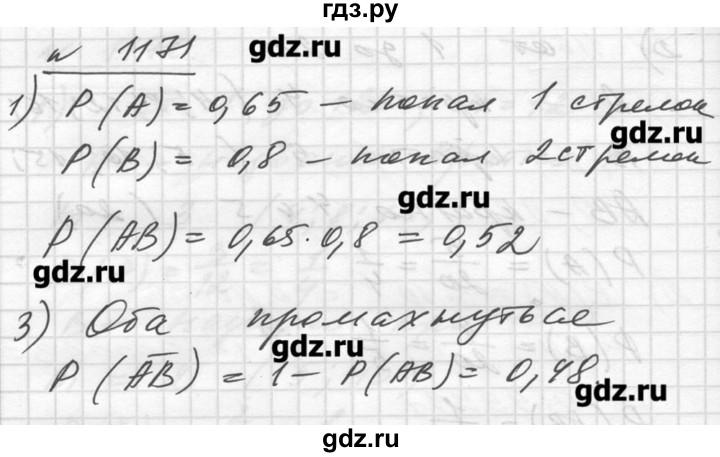 гдз.ру
№ 1171
gdz.ru
1) P(A) = 0,65 – попал 1 стрелок
gdz.ru
P(B) = 0,8 – попал 2 стрелок
gdz.ru
P(AB) = 0,65·0,8 = 0,52
gdz.ru
3) Оба промахнутьсе
gdz.ru
P(A̅B̅) = 1 – P(AB) = 0,48.
gdz.ru
gdz.ru